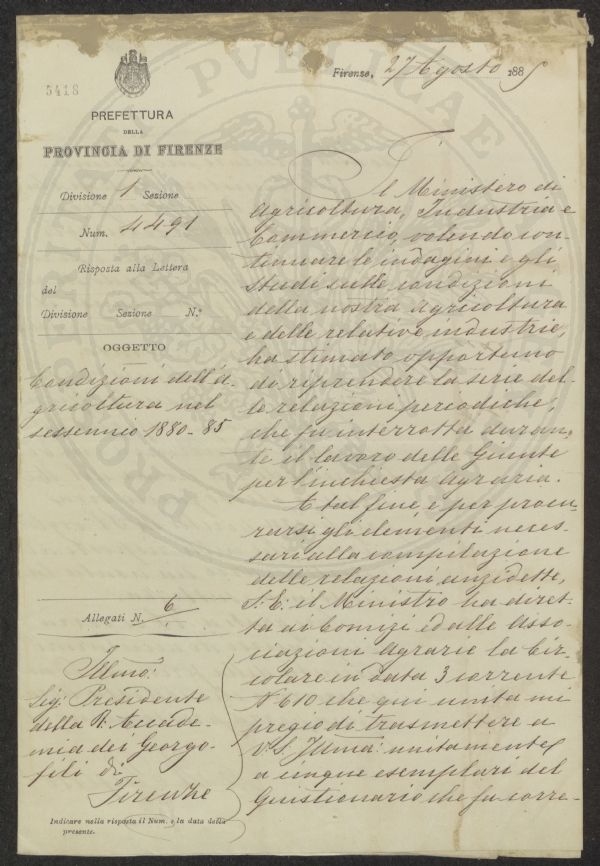 Firenze, 27 Agosto 1885
5418
PREFETTURA
DELLA
PROVINCIA DI FIRENZE
Divisione 1 Sezione
Num. 4491
Risposta alla Lettera
del
Divisione Sezione N.°
OGGETTO
Condizioni dell'a-
gricoltura nel
sessennio 1880-85
Allegati N. 6
Illmo:
Sig. Presidente
della R. Accade-
mia dei Georgo-
fili di
Firenze
Indicare nella risposta il Num. e la data della
presente.
Il Ministero di
Agricoltura, Industria e
Commercio, volendo con-
tinuare le indagini e gli
studi sulle condizioni
della nostra agricoltura
e delle relative industrie,
ha stimato opportuno
di riprendere la serie del-
le relazioni periodiche,
che fu interrotta duran-
te il lavoro delle Giunte
per l'inchiesta Agraria.
A tal fine, e per procu-
rarsi gli elementi neces-
sari alla compilazione
delle relazioni anzidette,
S. E. il Ministro ha diret-
ta ai Comizi ed alle Asso-
ciazioni Agrarie la Cir-
colare in data 3 corrente
N° 610 che qui unita mi
pregio di trasmettere a
V. S. Illma: unitamente
a cinque esemplari del
Questionario che fa corre-